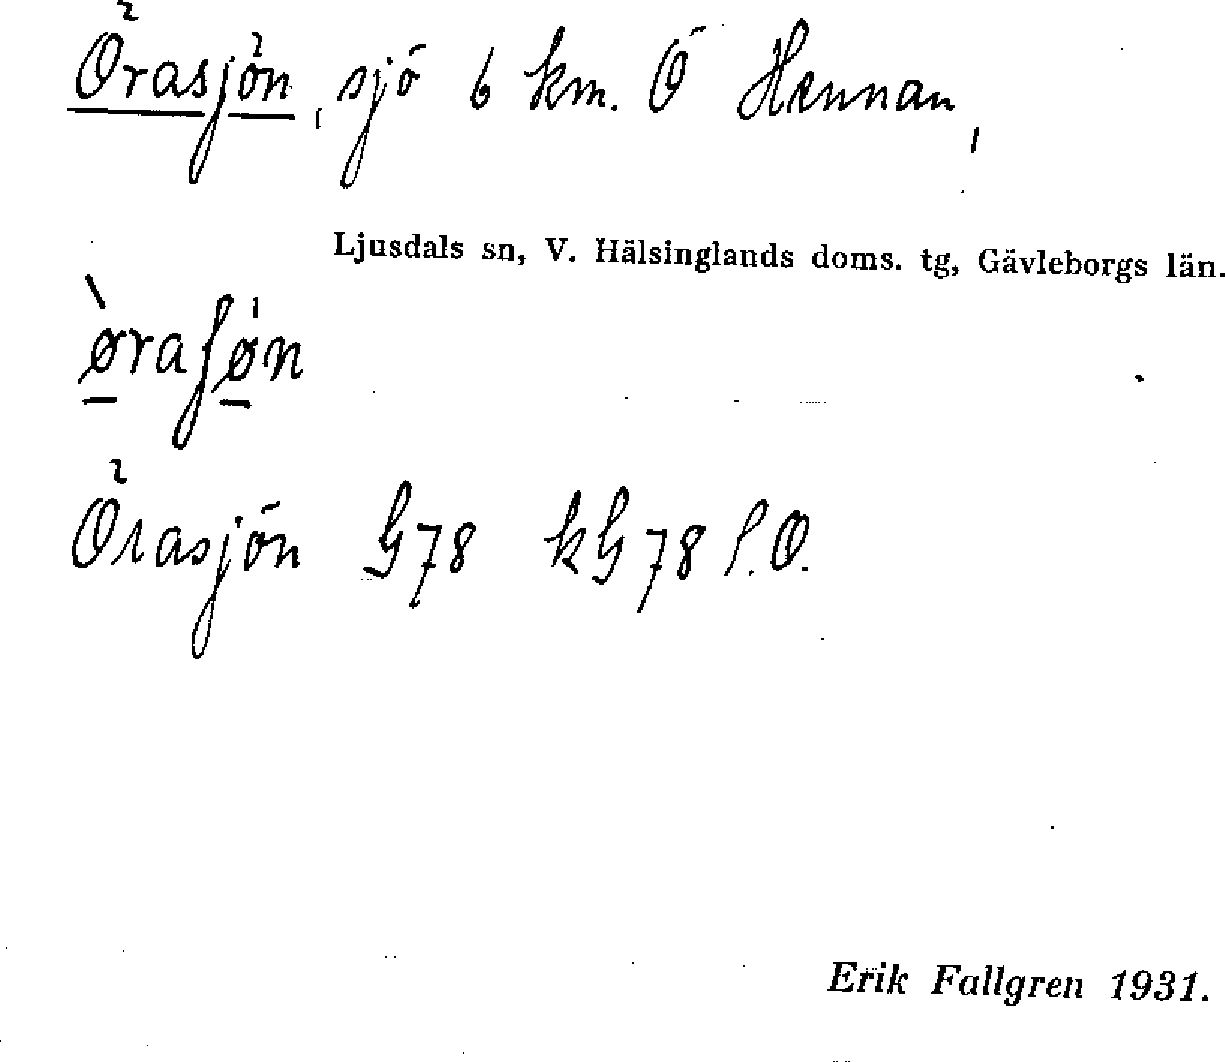 Örasjön, sjö 6 km. Ö Hennan,
Ljusdals sn, V. Hälsinglands doms. tg, Gävleborgs län.
ø̀raʃøn
Örasjön G78 kG78 S.O.
Erik Fallgren 1931.